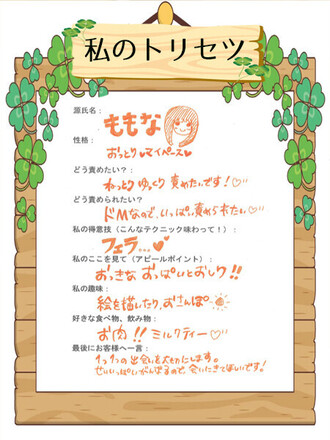 私のトリセツ
源氏名：
ももな
性格：
おっとり♥マイペース♥
どう責めたい？：
ねっとりゆっくり責めたいです！♡
どう責められたい？
ドMなので、いっぱい責められたい♡
私の得意技（こんなテクニック味わって！）：
フェラ...♥
私のここを見て（アピールポイント）：
おっきなおっぱいとおしり!!
私の趣味：
絵を描いたり、おさんぽ
好きな食べ物、飲み物：
お肉!!ミルクティー♡
最後にお客様へ一言：
1つ1つの出会いを大切にします。
せいいっぱいがんばるので、会いにきてほしいです！